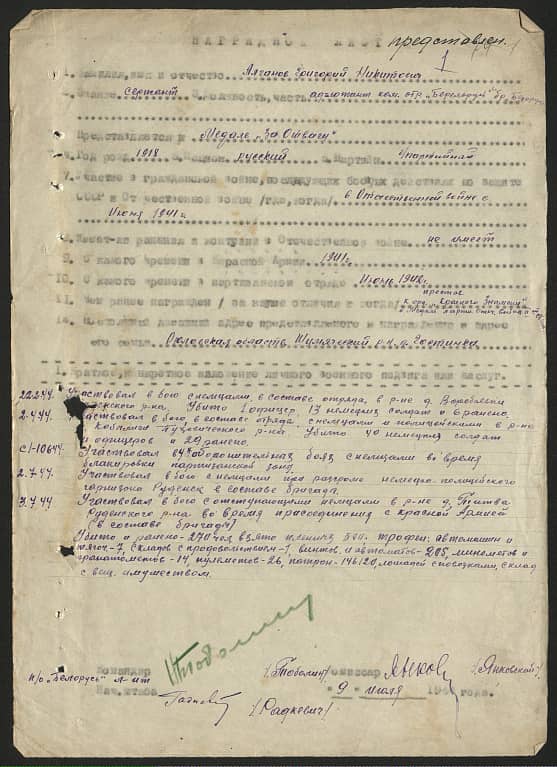 НАГРАДНОЙ ЛИСТ представлен
1
1. Фамилия, имя и отчество Алганов Григорий Никитович
2. Звание сержант 3. Должность, часть адъютант ком. отр. "Беларусь" бр. "Беларусь"
Представляется к Медале "За Отвагу"
4. Год рожд. 1918 5. Национ. русский 6. Партийн. б/партийный
7. Участие в гражданской войне, последующих боевых действиях по защите
СССР и Отечественной войне /где, когда/ в Отечественной войне с
Июня 1941 г.
8. Имеет-ли ранения и контузии в Отечественной войне не имеет
9. С какого времени в Красной Армии 1941 г.
10. С какого времени в партизанском отряде Июнь 1942 г.
11. Чем ранее награжден /за какие отличия и когда/ к орд. "Красного Знамени"
12. Постоянный домашний адрес представляемого к награждению и адрес
его семьи область,
1. Краткое, конкретное изложение личного военного подвига или заслуг.
22.2.44. Участвовал в бою с немцами, в составе отряда, в р-не д.
р-на. Убито 1 офицер, 13 немецких солдат и 6 ранено.
2-4.44. Участвовал в бою, в составе отряда с немцами и полицейскими в р-не
р-на. Убито 40 немецких солдат
и офицеров и 29 ранено.
Участвовал в оборонительных боях с немцами во время
блокировки партизанской зоны
2.7.44. Участвовал в бою с немцами при разгроме немецко-полицейского
гарнизона Руденск в составе бригады.
3.7.44 Участвовал в бою с отступающими немцами в р-не д.
Руденского р-на во время присоединения с красной Армией
(в составе бригады)
Убито и ранено-270 чел взято пленных трофеи: автомашин и
складов с продовольствием-1, винтов. и автоматов-205, минометов и
гранатометов-14, пулеметов-26, патрон-146120, лошадей с повозками, склад
с вещ. имуществом.
Командир /Тоболин/ Комиссар /Янковский/
п/о "Беларусь"
Нач. штаба /Радкевич/ "9" июля 194 года.